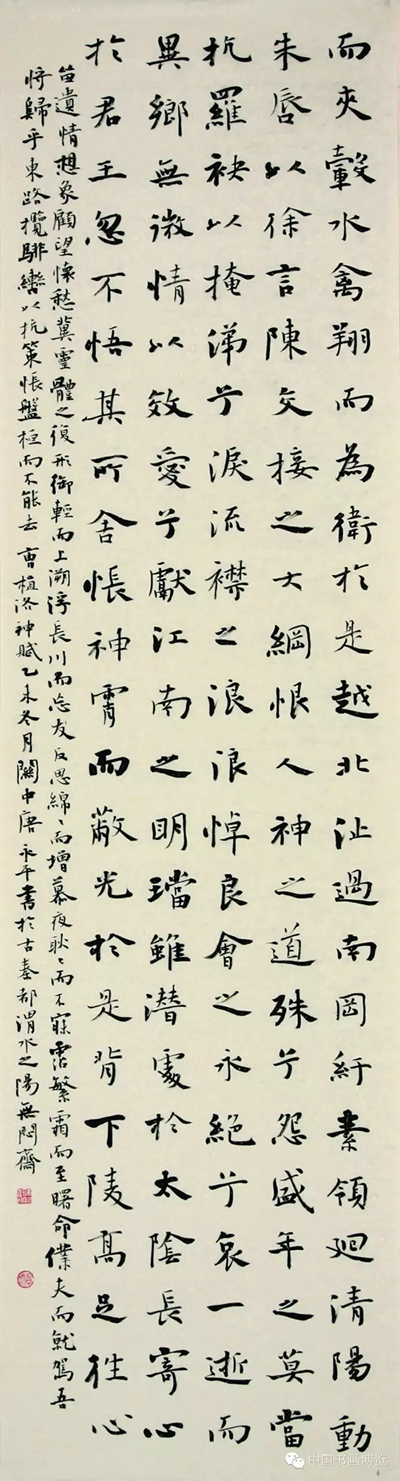 而夾轂水禽翔而為衛於是越北沚過南岡紆素領迴清陽動
朱唇以徐言陳交接之大綱恨人神之道殊兮怨盛年之莫當
抗羅袂以掩涕兮淚流襟之浪浪悼良會之永絕兮哀一逝而
異鄉無微情以效愛兮獻江南之明璫雖潛處於太陰長寄心
於君王忽不悟其所舍悵神宵而蔽光於是背下陵高足往心
留遺情想象顧望懷愁冀靈體之復形御輕而上溯浮長川而忘反反思綿〻而增慕夜耿〻而不寐霑繁霜而至曙命僕夫而就駕吾
將歸乎東路攬騑轡以抗策悵盤桓而不能去曹植洛神賦乙未冬月關中唐永平書於古秦都渭水之陽無悶齋
中国书画博览